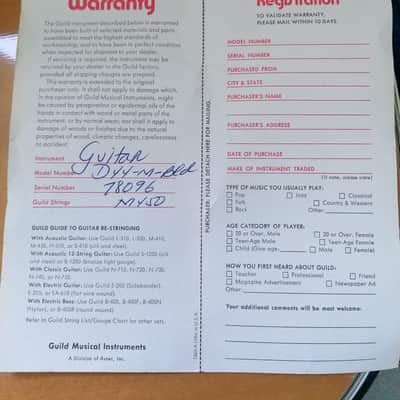 Warranty
The Guild instrument described below is warranted
to have been built of selected materials and parts
assembled to meet the highest standards of
workmanship, and to have been in perfect condition
when inspected for shipment to your dealer.
If servicing is required, the instrument may be
returned by your dealer to the Guild factory,
provided all shipping charges are prepaid.
This warranty is extended to the original
purchaser only. It shall not apply to damage which,
in the opinion of Guild Musical Instruments, might
be caused by perspiration or epidermal oils of the
hands in contact with wood or metal parts of the
instrument, or by normal wear; nor shall it apply to
damage of woods or finishes due to the natural
properties of wood, climatic changes, carelessness
or accident.
Instrument Guitar
Model Number D44-M-Bld
Serial Number 78096
Guild Strings M450
GUILD GUIDE TO GUITAR RE-STRINGING
With Acoustic Guitar: Use Guild L-310, L-320, M-410,
With Acoustic 12-String Guitar: Use Guild
With Classic Guitar: Use Guild N-710, N-720, N-730,
N-740, or N-750.
With Electric Guitar: Use Guild
With Electric Bass: Use Guild B-400, B-400F, B-400N
(Nylon), or B-400R (round wound).
Refer to Guild String List/Gauge Chart for other sets.
Guild Musical Instruments
A Division of Avnet, Inc.
PURCHASER: PLEASE DETACH HERE FOR MAILING.
Registration
TO VALIDATE WARRANTY,
PLEASE MAIL WITHIN 10 DAYS.
MODEL NUMBER
SERIAL NUMBER
PURCHASED FROM
CITY & STATE
PURCHASER'S NAME
PURCHASER'S ADDRESS
DATE OF PURCHASE
MAKE OF INSTRUMENT TRADED
(If none, please note)
TYPE OF MUSIC YOU USUALLY PLAY:
Pop Jazz Classical
Folk Country & Western
Rock Other:
AGE CATEGORY OF PLAYER:
30 or Over, Male 30 or Over, Female
Teen-Age Male Teen-Age Female
Child (Give age: Male Female)
HOW YOU FIRST HEARD ABOUT GUILD:
Teacher Professional Friend
Magazine Advertisement Newspaper Ad
Other:
Your additional comments will be most welcome: